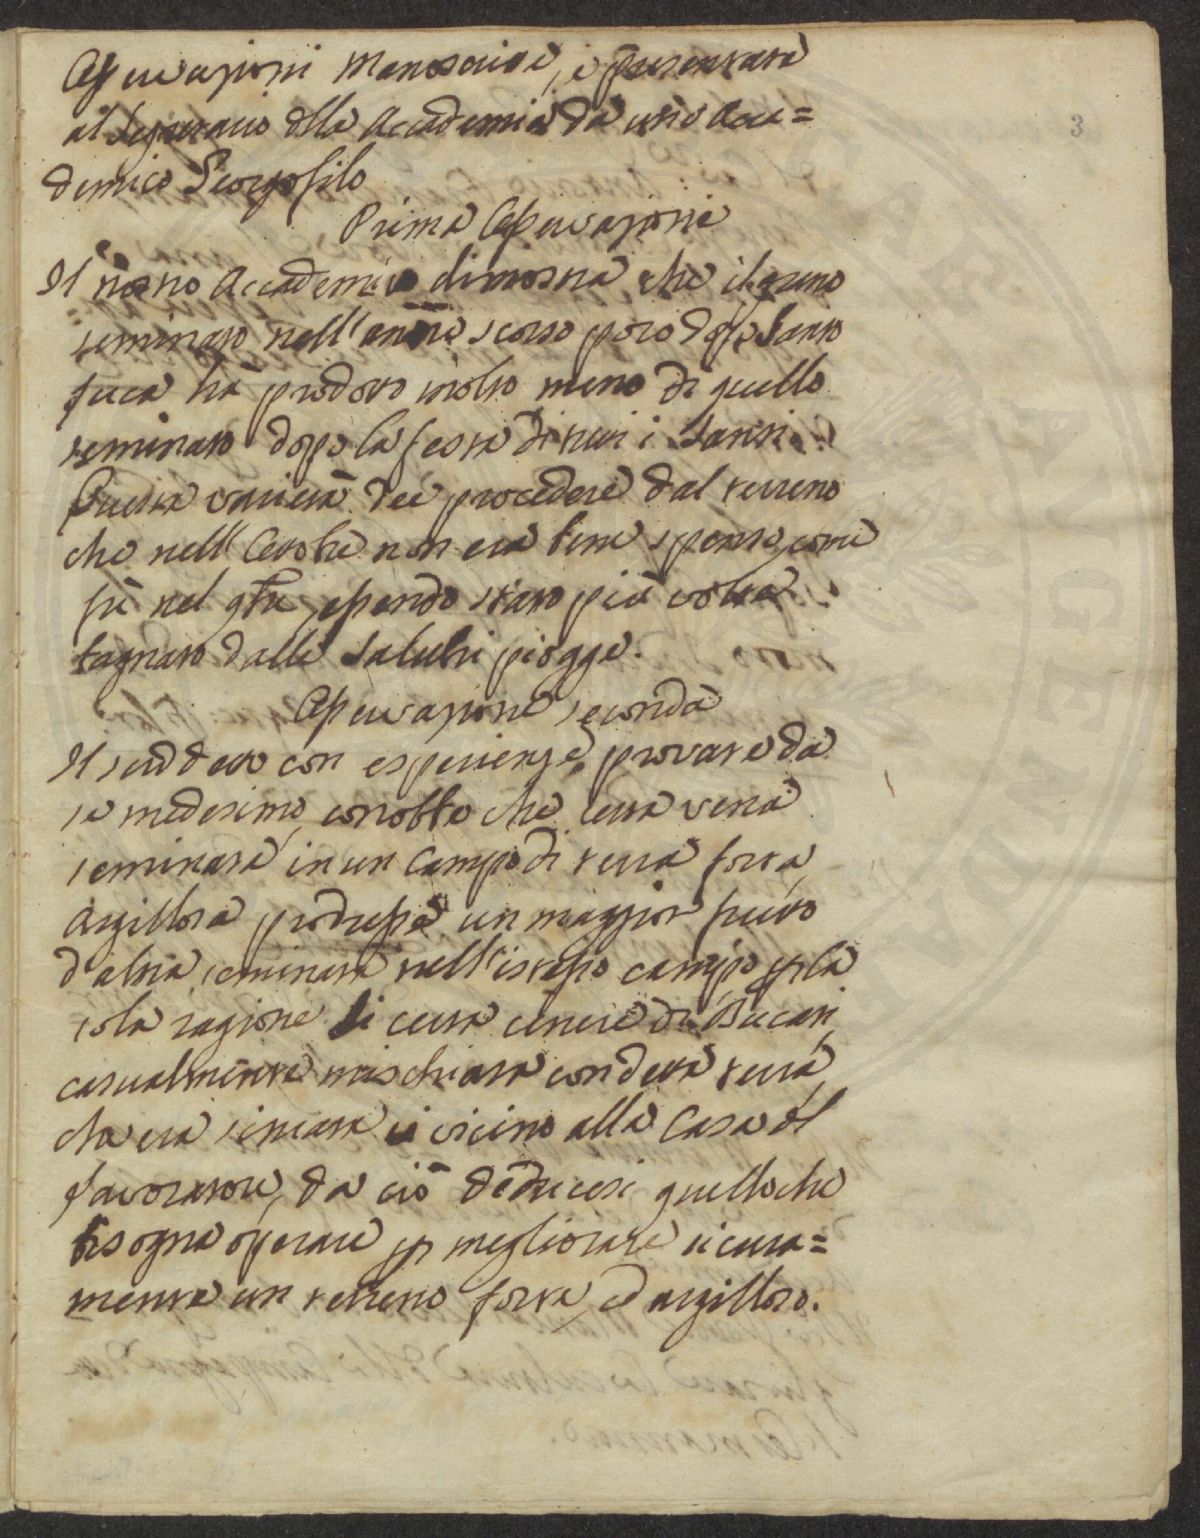 Osservazioni Manoscritte, e presentate
al Segretario della Accademia da uno Acca=
demico Georgofilo
3
Prima Osservazione
Il nostro Accademico dimostra che il grano
seminato nell'anno scorso poco dopo Santo
Luca ha prodotto molto meno di quello
seminato dopo la festa di tutti i Santi.
Questa varietà deè procedere dal terreno
che nell'Ottobre non era bene spento, come
fù nel 9bre, essendo stato più volte
bagnato dalle salubri piogge.
Osservazione seconda
Il suddetto con esperienze provate da
se medesimo conobbe che certa vena
seminata in un Campo di terra forte
Argillosa produsse un maggior frutto
d'altra seminata nell'istesso campo p la
sola ragione di certa cenere di Bucati
casualmente mischiata con detta terra,
che era situata vicino alla Casa del
Lavoratore, da ciò deducesi quello che
bisogna operare p megliorare sicura=
mente un terreno forte, ed argilloso.